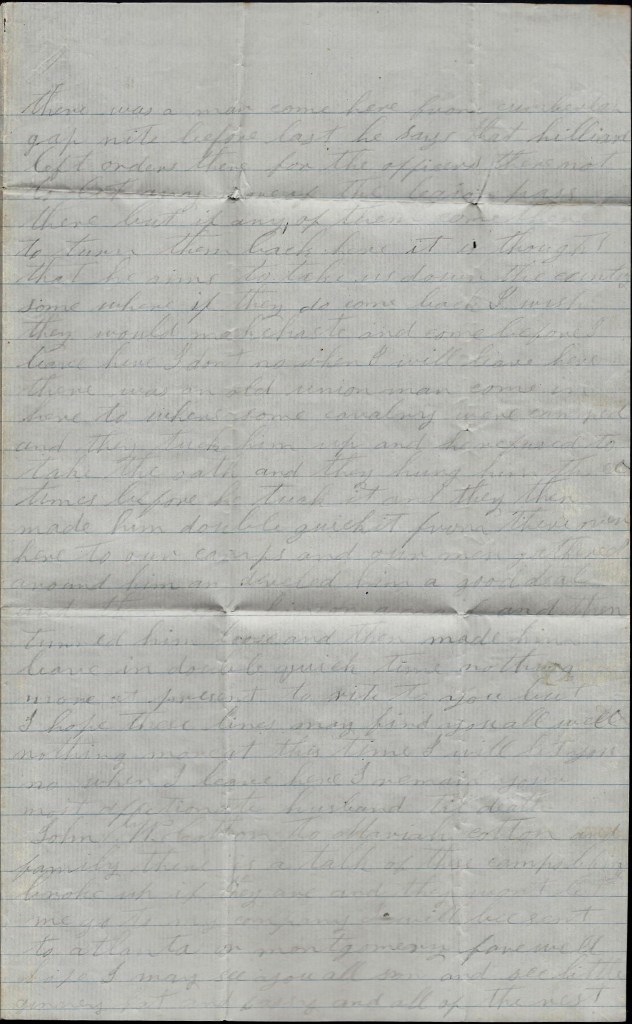 there was a man come here from cumberlan
gap nite before last he says that hillian
left orders there for the officers there not
to let any more of the legion pass
there but if any of them come there
to turn them back here it is thought
that he aims to take us down the cuntry
some where if they do come back I wish
they would make haste and come before I
leave here I dont no when I will leave here
there was an old union man come in
here to where some cavalry were camped
and they tuck him up and he refused to
take the oath and they hung him three
times before he tuck it and they then
made him double quicket from there
here to our camps and our men gathered
around him an deviled him a good deal
and then
turned him loose and then made him
leave in double quick time nothing
more at present to rite to you but
I hope these lines may find you all well
nothing more at this time I will let you
no when I leave here I remain your
most affectionate husband til death
John W cotton to Mariah cotton and
family there is a talk of this camp being
broke up if they are and they wont let
me go to my company I will bee sent
to atlanta or montgomery fare well
I may see you all soon and see little
ginney and and all of the rest